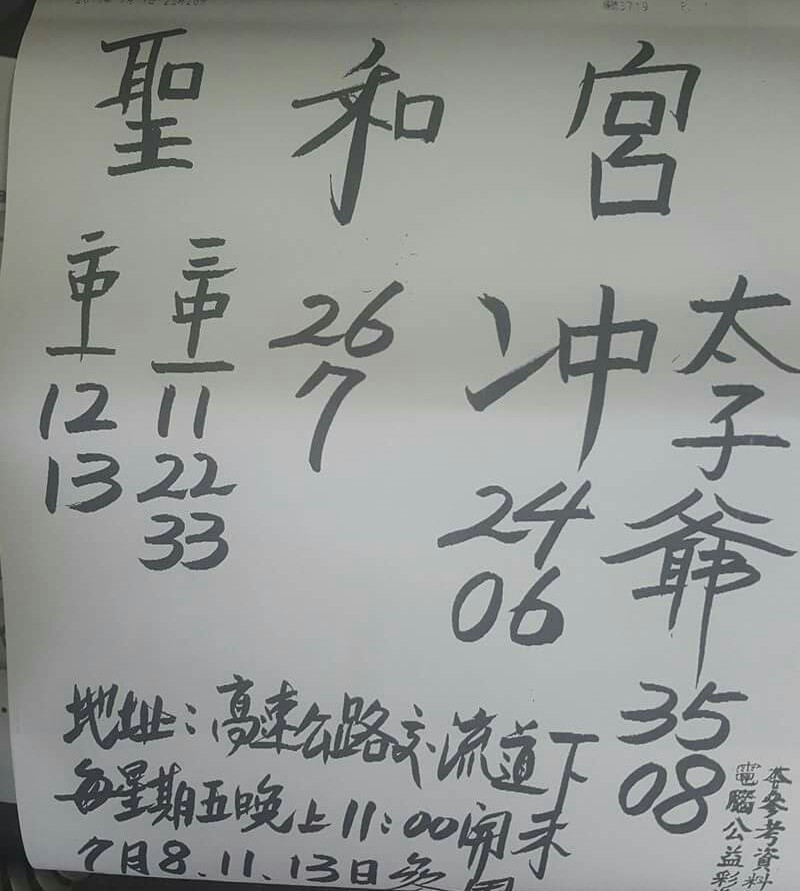 聖和宮
太子爺
35
08
冲
24
06
26
7
三中一
11
22
33
二中一
12
13
地址：高速公路交流道下
每星期五晚上11:00開
7月8.11.13日參
本參考資料
電腦公益彩